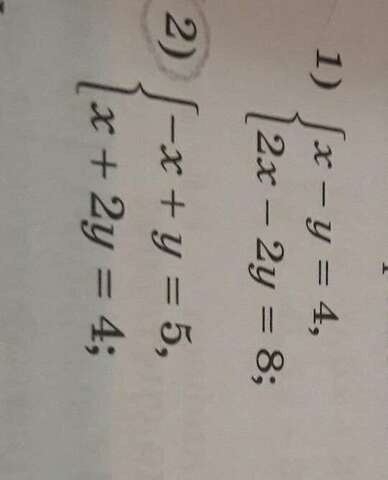 1) { x − y = 4,
2x − 2y = 8;
2) { −x + y = 5,
x + 2y = 4;